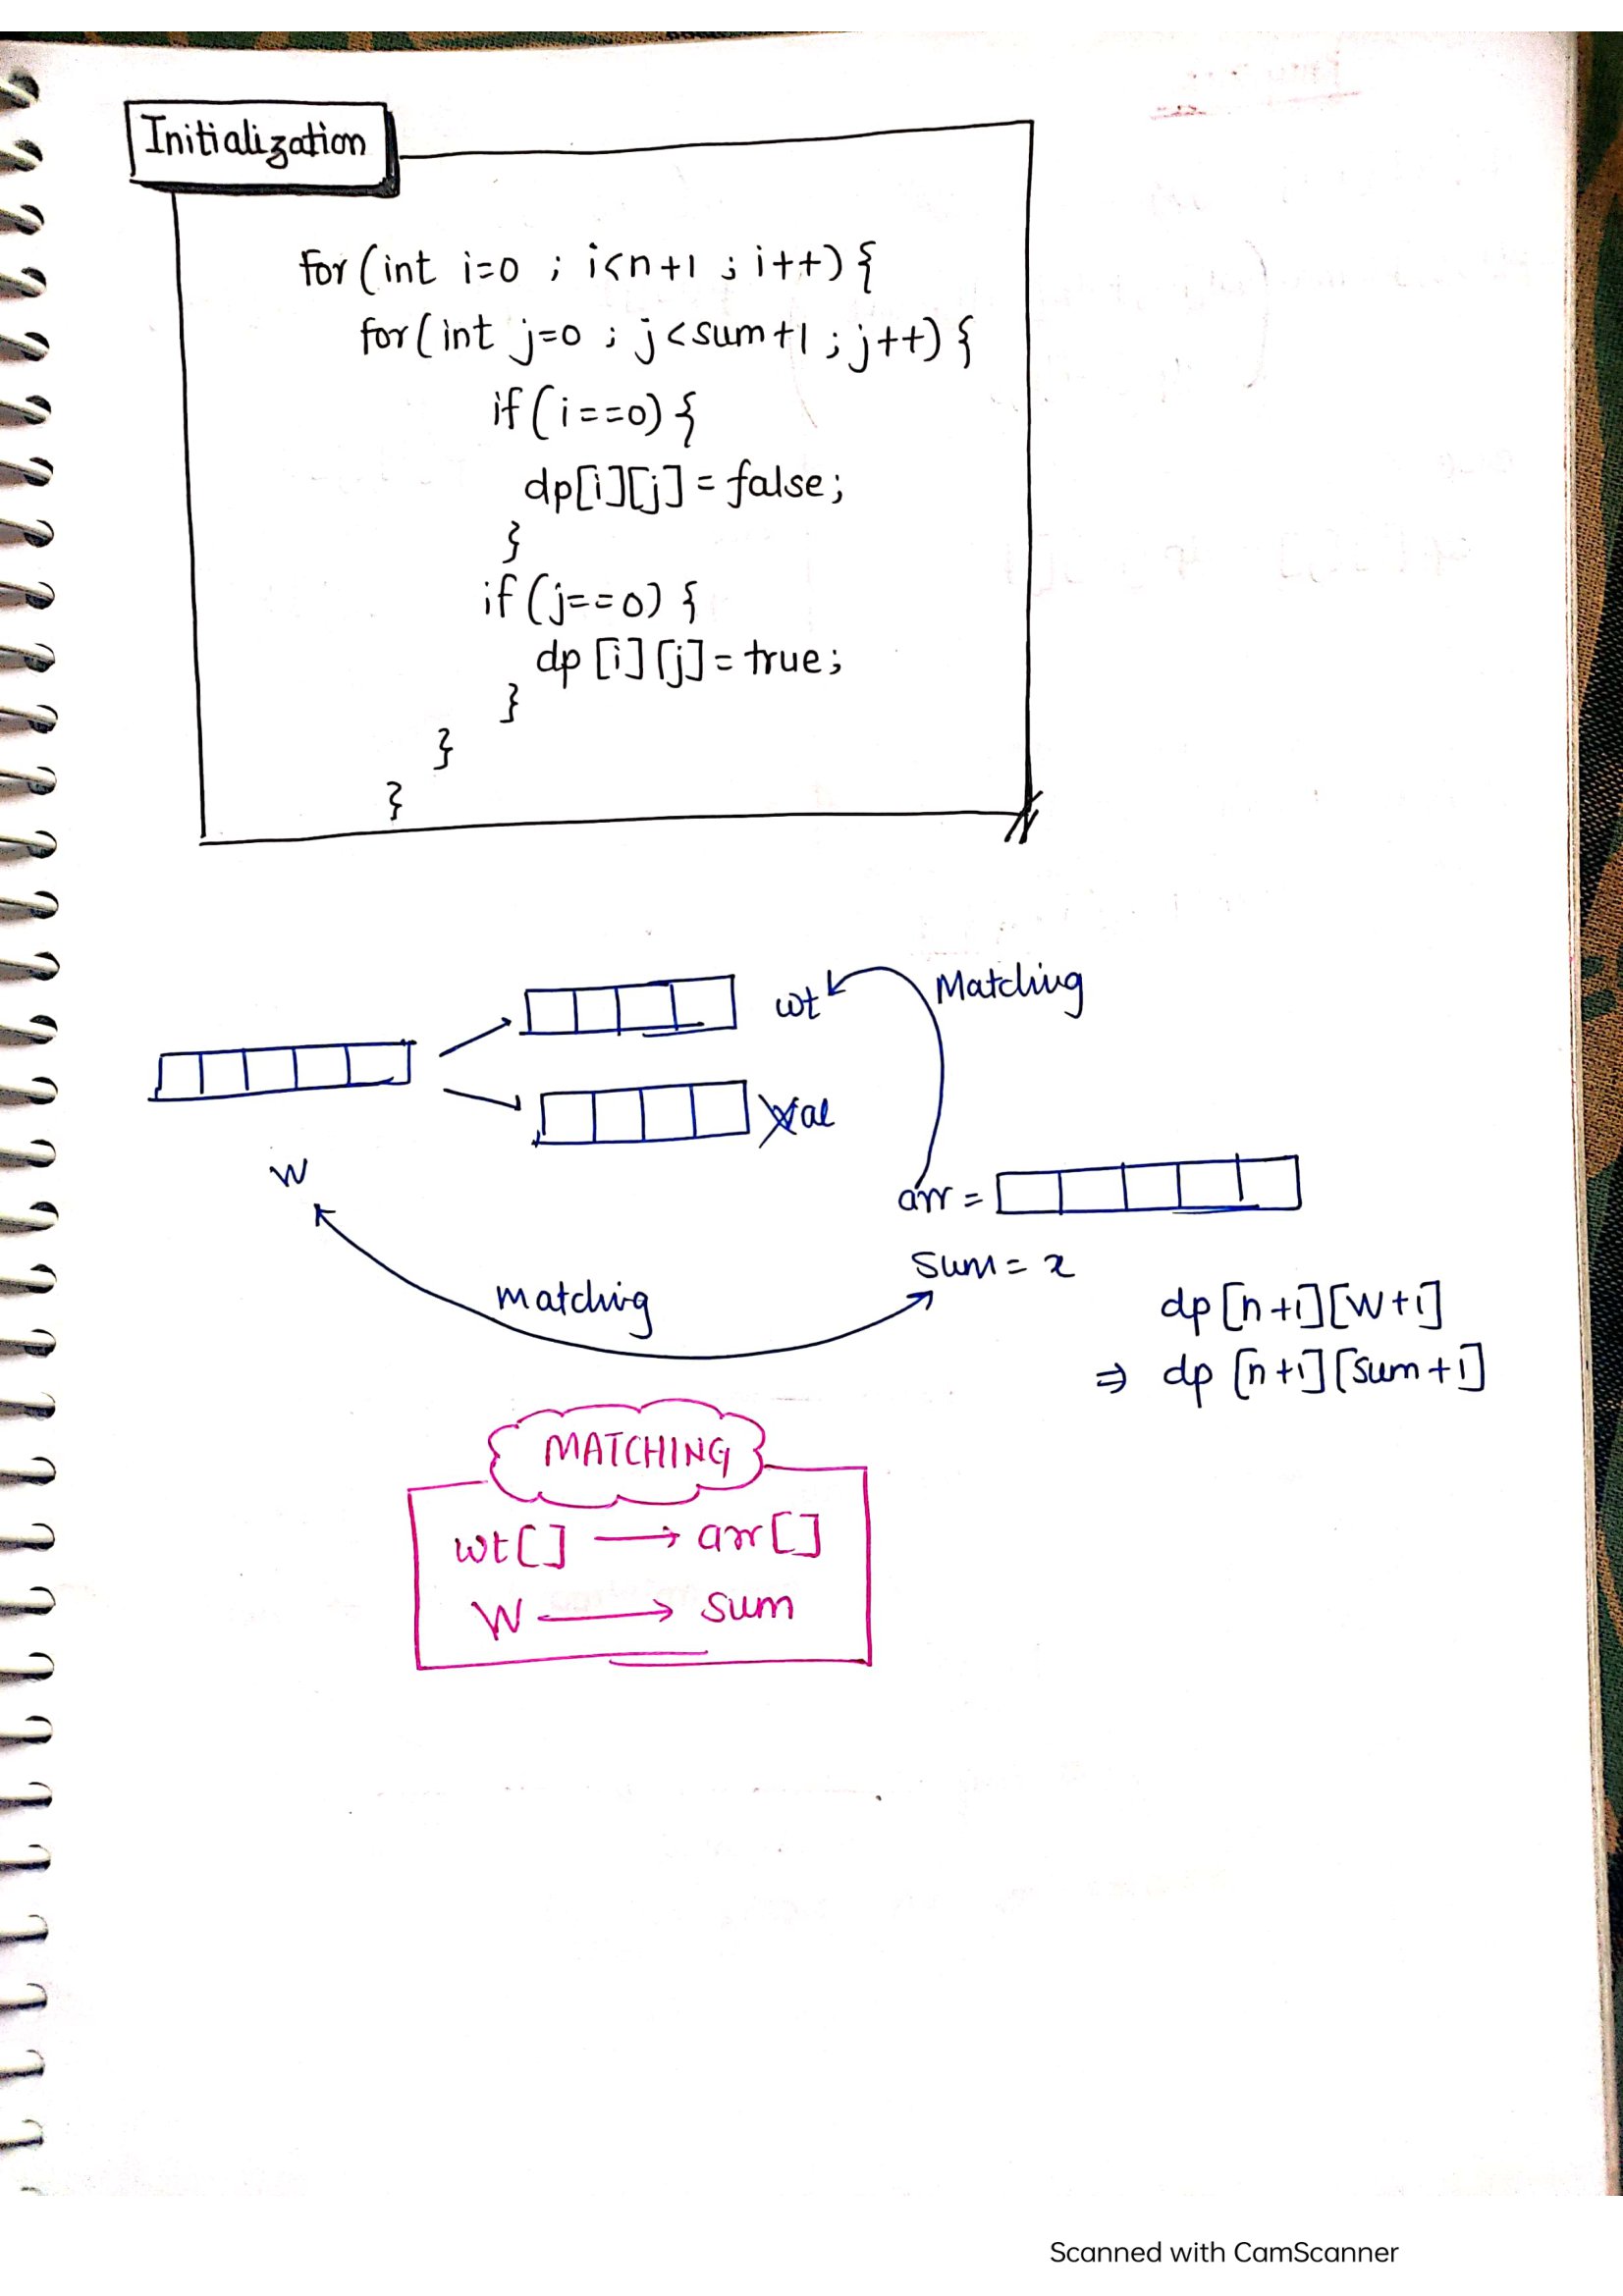 Initialization
for(int i=0 ; i<n+1 ; i++){
for(int j=0 ; j<sum+1 ; j++){
if(i==0){
dp[i][j]=false;
}
if(j==0){
dp[i][j]=true;
}
}
}
wt
Matching
val
W
arr =
sum = x
matching
dp[n+1][W+1]
⇒ dp[n+1][sum+1]
MATCHING
wt[] → arr[]
W → sum
Scanned with CamScanner